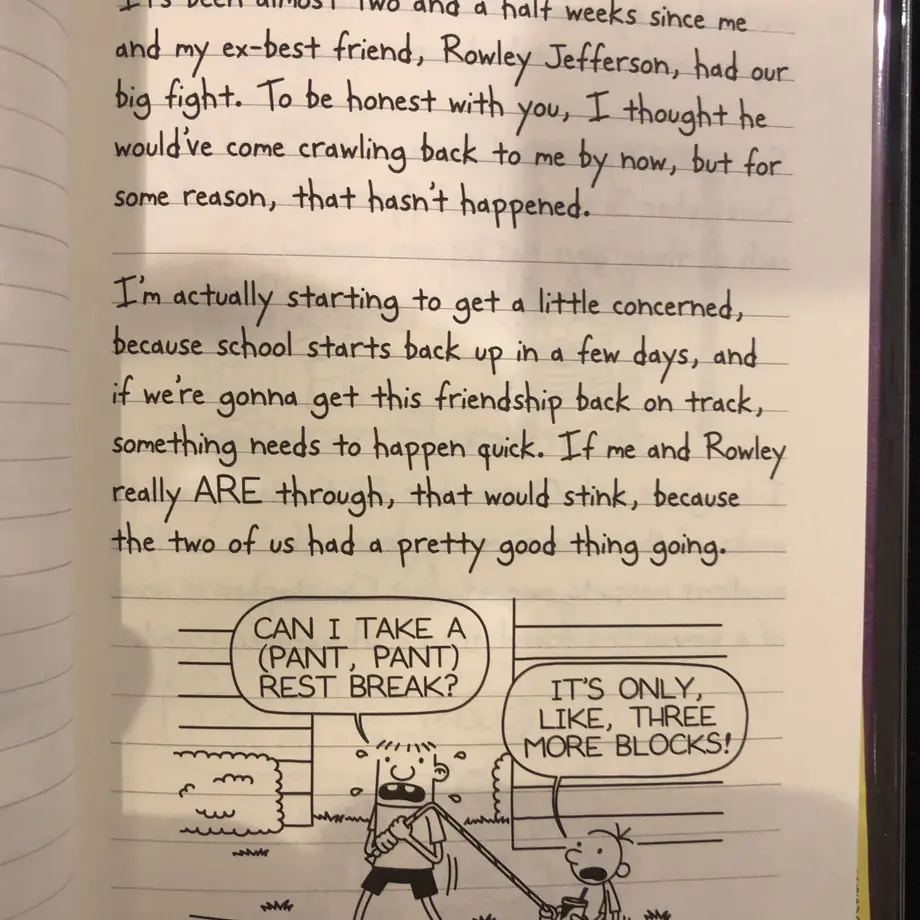 It's been almost two and a half weeks since me
and my ex-best friend, Rowley Jefferson, had our
big fight. To be honest with you, I thought he
would've come crawling back to me by now, but for
some reason, that hasn't happened.
I'm actually starting to get a little concerned,
because school starts back up in a few days, and
if we're gonna get this friendship back on track,
something needs to happen quick. If me and Rowley
really ARE through, that would stink, because
the two of us had a pretty good thing going.
CAN I TAKE A
(PANT, PANT)
REST BREAK?
IT'S ONLY,
LIKE, THREE
MORE BLOCKS!